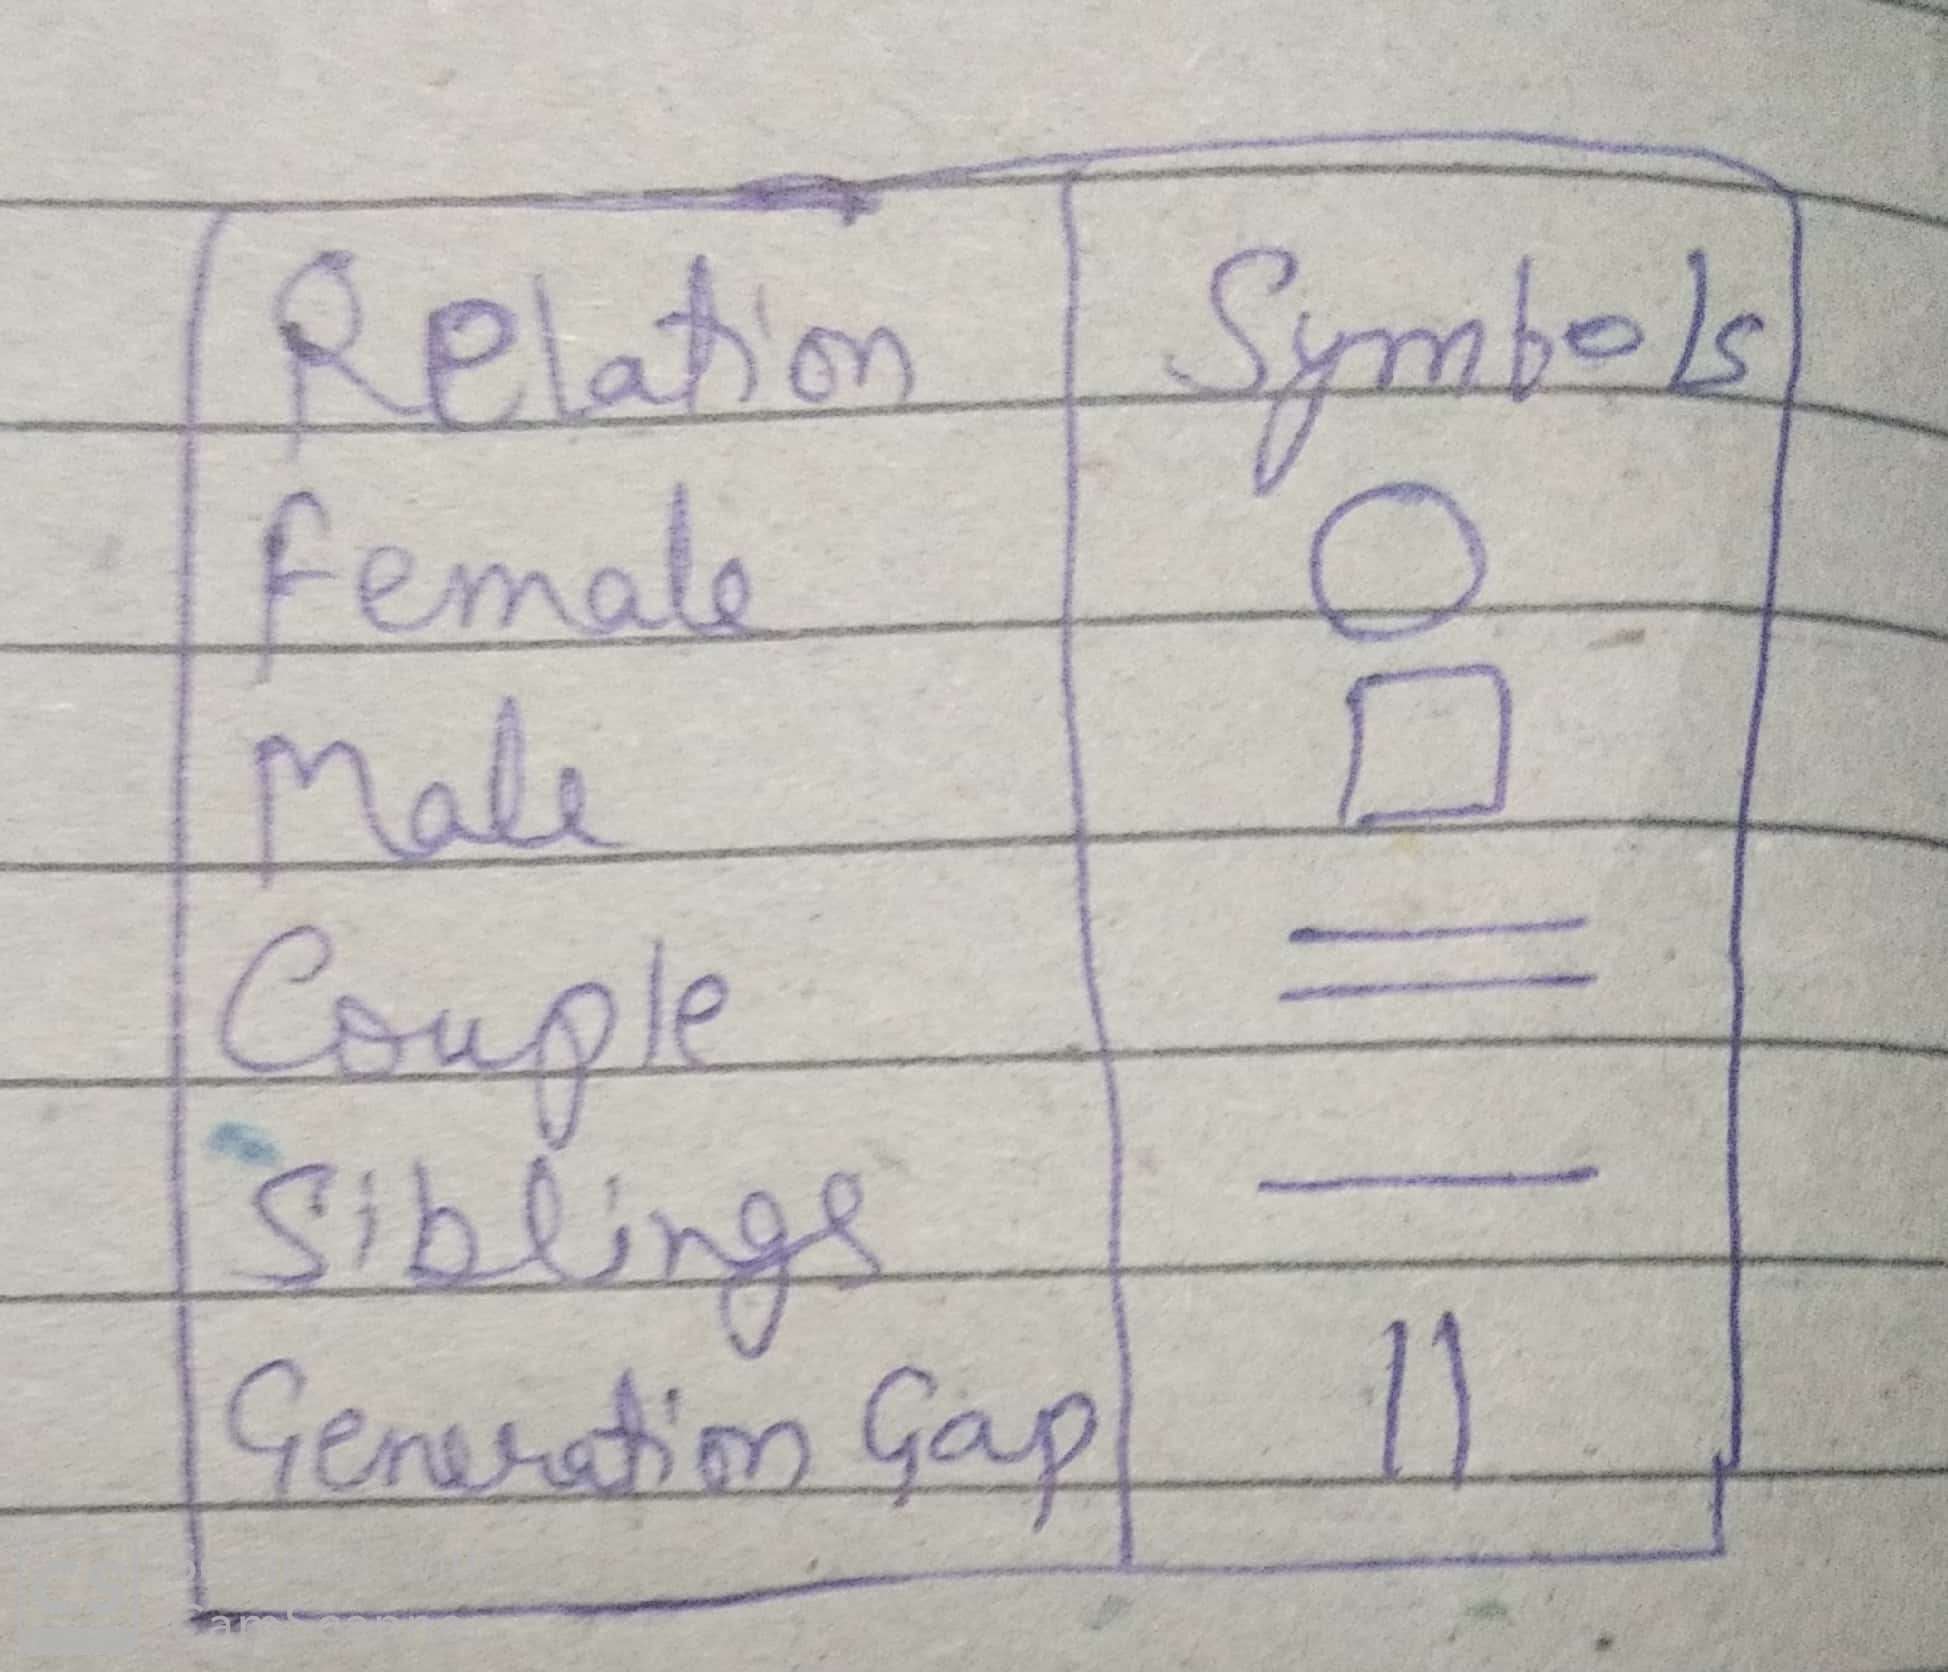 Relation Symbols
Female ○
Male □
Couple =
Siblings —
Generation Gap ||